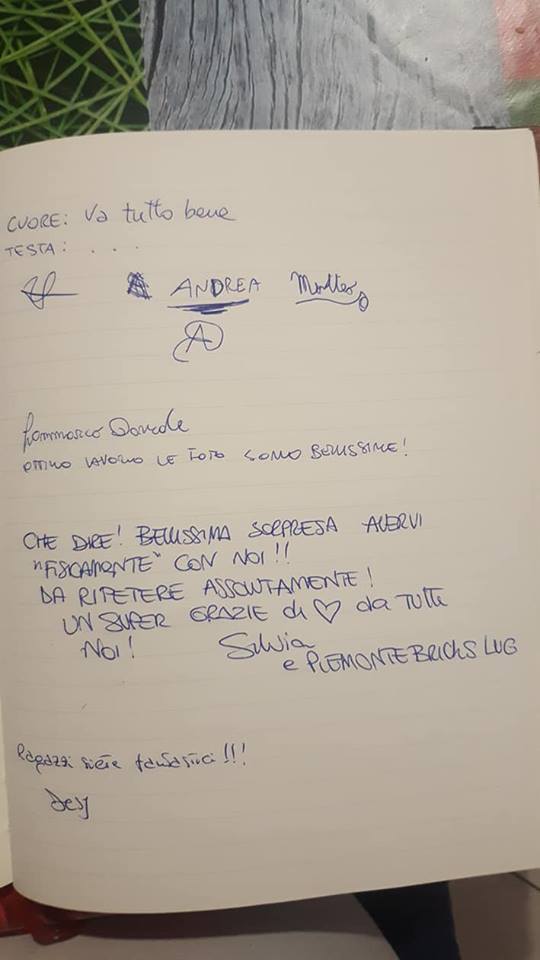 CUORE: Va tutto bene
TESTA: . . .
ANDREA
A
Davide
OTTIMO LAVORO LE FOTO SONO BELLISSIME!
CHE DIRE! BELLISSIMA SORPRESA AVERVI
"FISICAMENTE" CON NOI!!
DA RIPETERE ASSOLUTAMENTE!
UN SUPER GRAZIE di ♡ da TUTTI
NOI! Silvia
e PIEMONTEBRICKS LUG
Ragazzi siete fantastici!!!
Desy